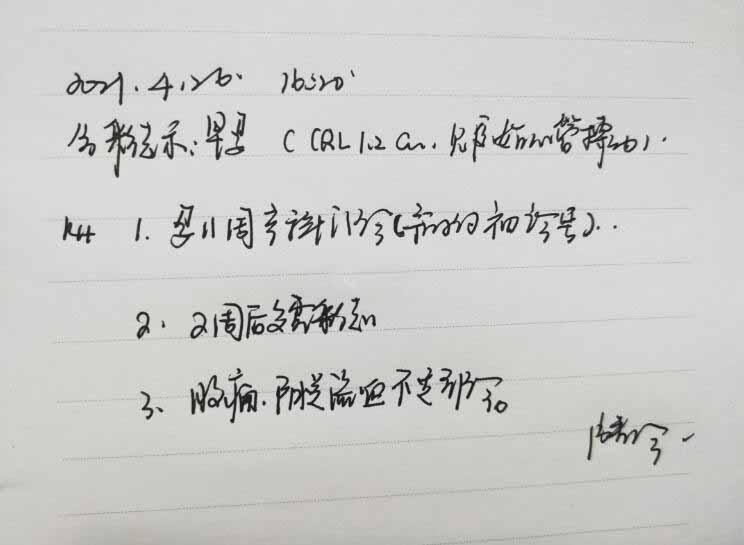 2021.4.26. 16:20'
今彩超示:早孕(CRL 1.2cm.见原始心管搏动).
RH 1. 孕11周产检门诊(预约初诊号)..
2. 2周后复查彩超
3、腹痛.阴道流血不适就诊。